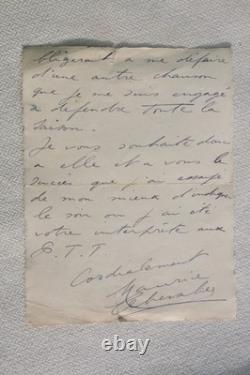 obligerait a me défaire
d'une autre chanson
que je me suis engagé
a défendre toute la
saison.
Je vous souhaite donc
a elle et a vous le
que j'ai essayé
de mon mieux
le soir ou j'ai été
votre interprète aux
P.T.T.
Cordialement
Maurice
Chevalier